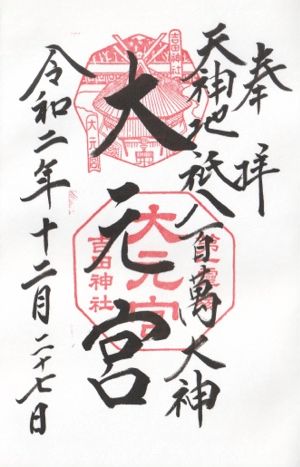 奉拝
天神地祇八百萬大神
大元宮
令和二年十二月二十七日
吉田神社
大元宮
大元宮
吉田神社